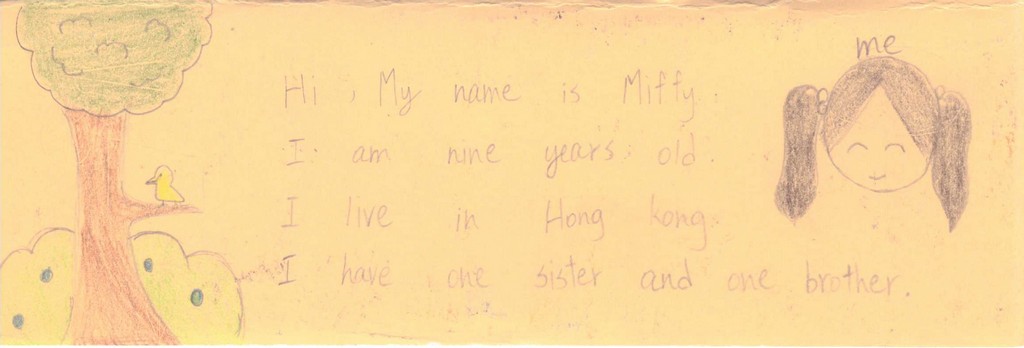 me
Hi, My name is Miffy.
I am nine years old.
I live in Hong kong.
I have one sister and one brother.